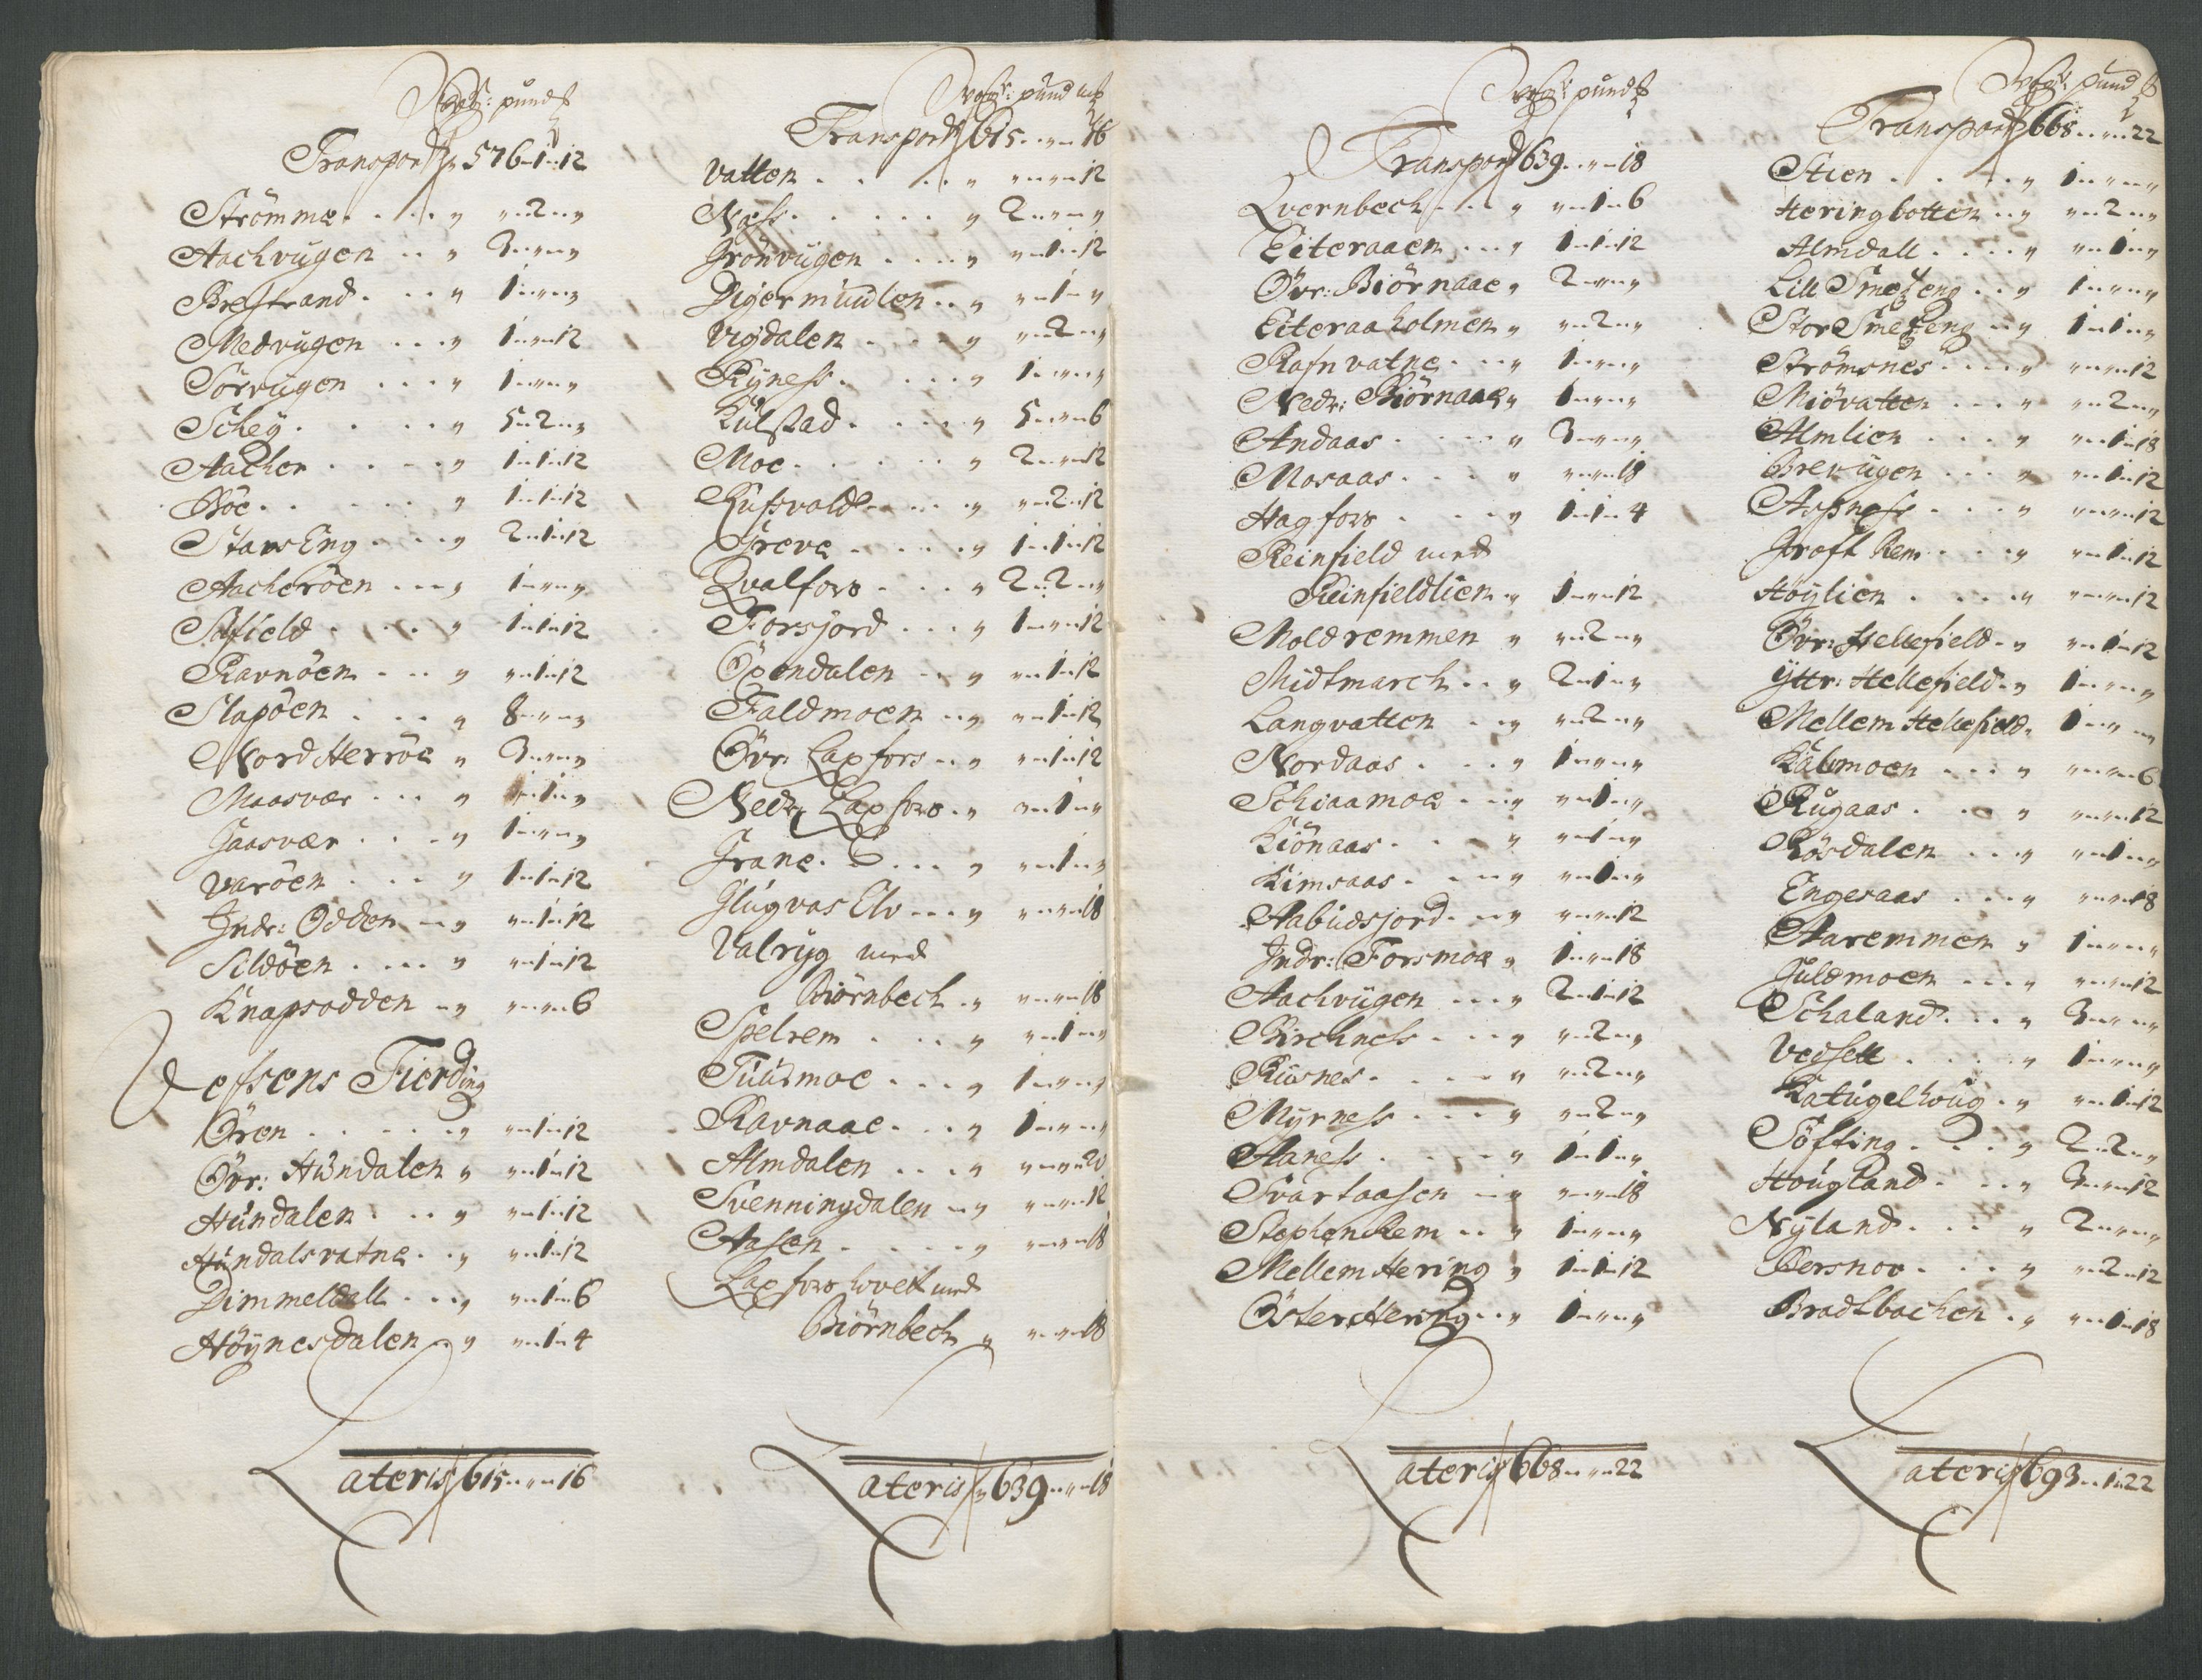 Wog: pund ℔
Transport 576 - 1 - 12
Strömme . . . . „ „ - 2 - „
Aachvugen . . „ 3 - „ - „
Brestrand . . . „ 1 - „ - „
Medvugen . . . „ 1 - „ - 12
Sörvugen . . . . „ 1 - „ - „
Schey . . . . . „ 5 - 2 - „
Aacher . . . . . „ 1 - 1 - 12
Böe . . . . . . „ 1 - 1 - 12
StavsEng . . . . „ 2 - 1 - 12
Aacheröen . . . „ 1 - „ - „
Satield . . . . „ 1 - 1 - 12
Ravnöen . . . „ „ - 1 - 12
Slapöen . . . . „ 8 - „ - „
Nord Herröe „ 3 - „ - „
Maasvær . . . „ „ - 1 - „
Gaasvær . . . „ 1 - „ - „
Varöen . . . . „ 1 - 1 - 12
Indr: Odden . . „ „ - 1 - 12
Sildöen . . . . „ „ - 1 - 12
Knapsodden . „ „ - „ - 6
Vefsens Fierding
Ören . . . . . . „ „ - 1 - 12
Övr: Hundalen „ „ - 1 - 12
Hundalen . . . „ „ - 1 - 12
Hundalsvatne . . „ „ - 1 - 12
Dimmeldall . . . „ „ - 1 - 6
Höynesdalen . „ „ - 1 - 4
Lateris 615 - „ - 16
Wog: pund ℔
Transport 615 - „ - 16
Vatten . . . . . „ „ - „ - 12
Næss . . . . . . „ 2 - „ - „
Grönvugen . . . . „ „ - 1 - 12
Digermuulen . . „ „ - 1 - „
Vigdalen . . . . „ „ - 2 - „
Ryness . . . . . „ 1 - „ - „
Kulstad . . . . . „ 5 - „ - 6
Moe . . . . . . „ 2 - „ - 12
Russvold . . . . „ „ - 2 - 12
Greve . . . . . „ 1 - 1 - 12
Qvalfors . . . . „ 2 - 2 - „
Forsjord . . . „ 1 - „ - 12
Öxendalen . . „ „ - 1 - 12
Faldmoen . . „ „ - 1 - 12
Övr: Laxfors . . „ „ - 1 - 12
Nedr: Laxfors . „ „ - 1 - „
Grane . . . . . „ „ - 1 - „
Glugvas Elv . . . „ „ - „ - 18
Valryg med
Biörnbech . „ „ - „ - 18
Spelrem . . . . „ „ - 1 - „
Tuusmoe . . . . „ 1 - „ - „
Ravnaae . . . „ 1 - „ - „
Almdalen . . . . „ „ - „ - 20
Svenningdalen . „ „ - „ - 12
Aasen . . . . . „ „ - „ - 18
Laxfors hovet med
Biörnbech „ „ - „ - 18
Lateris 639 - „ - 18
Wog: pund ℔
Transport 639 - „ - 18
Qvernbech . . . „ „ - 1 - 6
Eiteraaen . . . „ 1 - 1 - 12
Övr: Biörnaae „ 2 - „ - „
Eiteraaholmen „ „ - 2 - „
Rafnvatne . . . „ 1 - „ - „
Nedr: Biörnaae „ 1 - „ - „
Andaas . . . . „ 3 - „ - „
Mosaas . . . . „ „ - „ - 18
Hagfors . . . . „ 1 - 1 - 4
Reinfield med
Reinfieldlien „ 1 - „ - 12
Moldremmen „ „ - 2 - „
Midtmarch . . „ 2 - 1 - „
Langvatten . . „ „ - 2 - „
Nordaas . . . . „ 1 - „ - „
Schiaamoe . . „ „ - 1 - „
Kiönaas . . . „ „ - 1 - „
Kimsaas . . . . „ „ - 1 - „
Aabudsjord . . „ „ - „ - 12
Indr: Forsmoe „ 1 - „ - 18
Aachvugen . . . „ 2 - 1 - 12
Birchness . . . „ „ - 2 - „
Ruusnes . . . . „ „ - 2 - „
Myrness . . . . „ „ - 2 - „
Aaness . . . . „ 1 - 1 - „
Svartaasen . . „ „ - „ - 18
StephenRem . . „ 1 - „ - „
Mellem Hering „ 1 - 1 - 12
Öster Hering . . „ 1 - „ - „
Lateris 668 - „ - 22
Wog: pund ℔
Transport 668 - „ - 22
Stien . . . . . „ 1 - „ - „
Heringbotten . . „ „ - 2 - „
Almdall . . . . „ „ - 1 - „
Lill Smeseng . . „ 1 - „ - „
Stor Smeseng . . „ 1 - 1 - „
Strömsnes . . . . „ „ - „ - 12
Miövatten . . . „ „ - 2 - „
Almlien . . . . „ „ - 1 - 18
Brevugen . . . „ „ - 1 - 12
Aspness . . . . „ „ - „ - 12
Groft Rem . . . „ „ - 1 - 12
Höylien . . . . „ „ - „ - 12
Övr: Hellefield . „ „ - 1 - 12
Yttr: Hellefield . „ 1 - „ - „
Mellem Hellefield . 1 - „ - „
Kalvmoen . . . „ „ - „ - 6
Rugaas . . . . „ „ - „ - 12
Rösdalen . . . „ „ - 1 - „
Engesaas . . . . „ „ - „ - 18
Aaremmen „ 1 - „ - „
Guldmoen . . . „ „ - „ - 12
Schaland . . . „ 3 - „ - „
Vedsell . . . . . „ 1 - „ - „
Katugelhoug . „ „ - 1 - 12
Söfting . . . . „ 2 - 2 - „
Hougland . . . „ 3 - „ - 12
Nyland . . . . „ 2 - „ - „
Bersnov . . . . „ „ - 2 - 12
Bradtbachen . „ „ - 1 - 18
Lateris 693 - 1 - 22